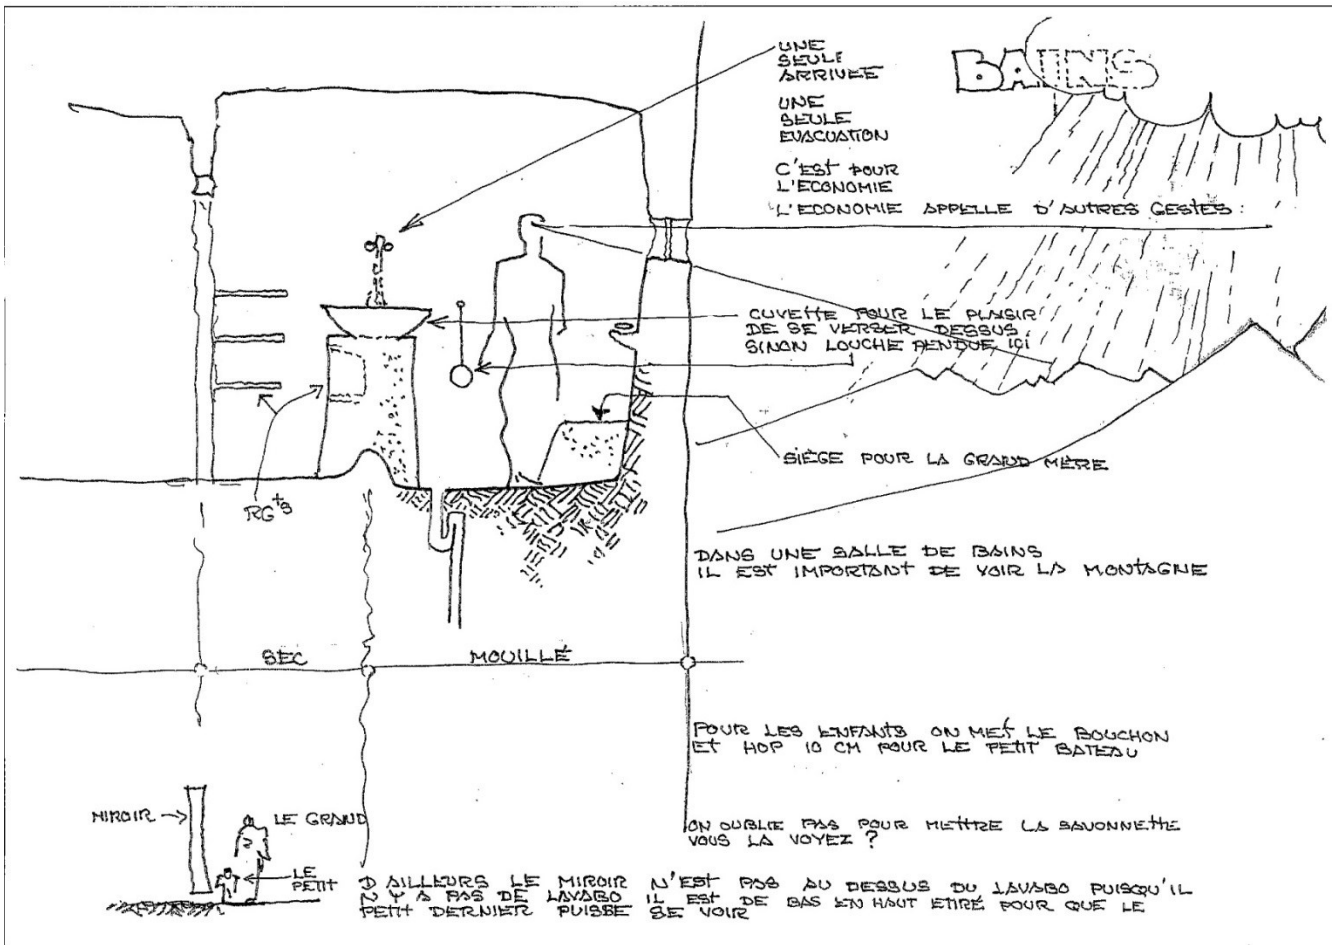 BAINS
UNE
SEULE
ARRIVEE
UNE
SEULE
EVACUATION
C'EST POUR
L'ECONOMIE
L'ECONOMIE APPELLE D'AUTRES GESTES :
CUVETTE POUR LE PLAISIR
DE SE VERSER DESSUS
SINON LOUCHE PENDUE ICI
SIÈGE POUR LA GRAND MÈRE
RGts
DANS UNE SALLE DE BAINS
IL EST IMPORTANT DE VOIR LA MONTAGNE
SEC
MOUILLÉ
POUR LES ENFANTS ON MET LE BOUCHON
ET HOP 10 CM POUR LE PETIT BATEAU
MIROIR
LE GRAND
LE
PETIT
ON OUBLIE PAS POUR METTRE LA SAVONNETTE
VOUS LA VOYEZ ?
D AILLEURS LE MIROIR N'EST PAS AU DESSUS DU LAVABO PUISQU'IL
N Y A PAS DE LAVABO IL EST DE BAS EN HAUT ETIRÉ POUR QUE LE
PETIT DERNIER PUISSE SE VOIR